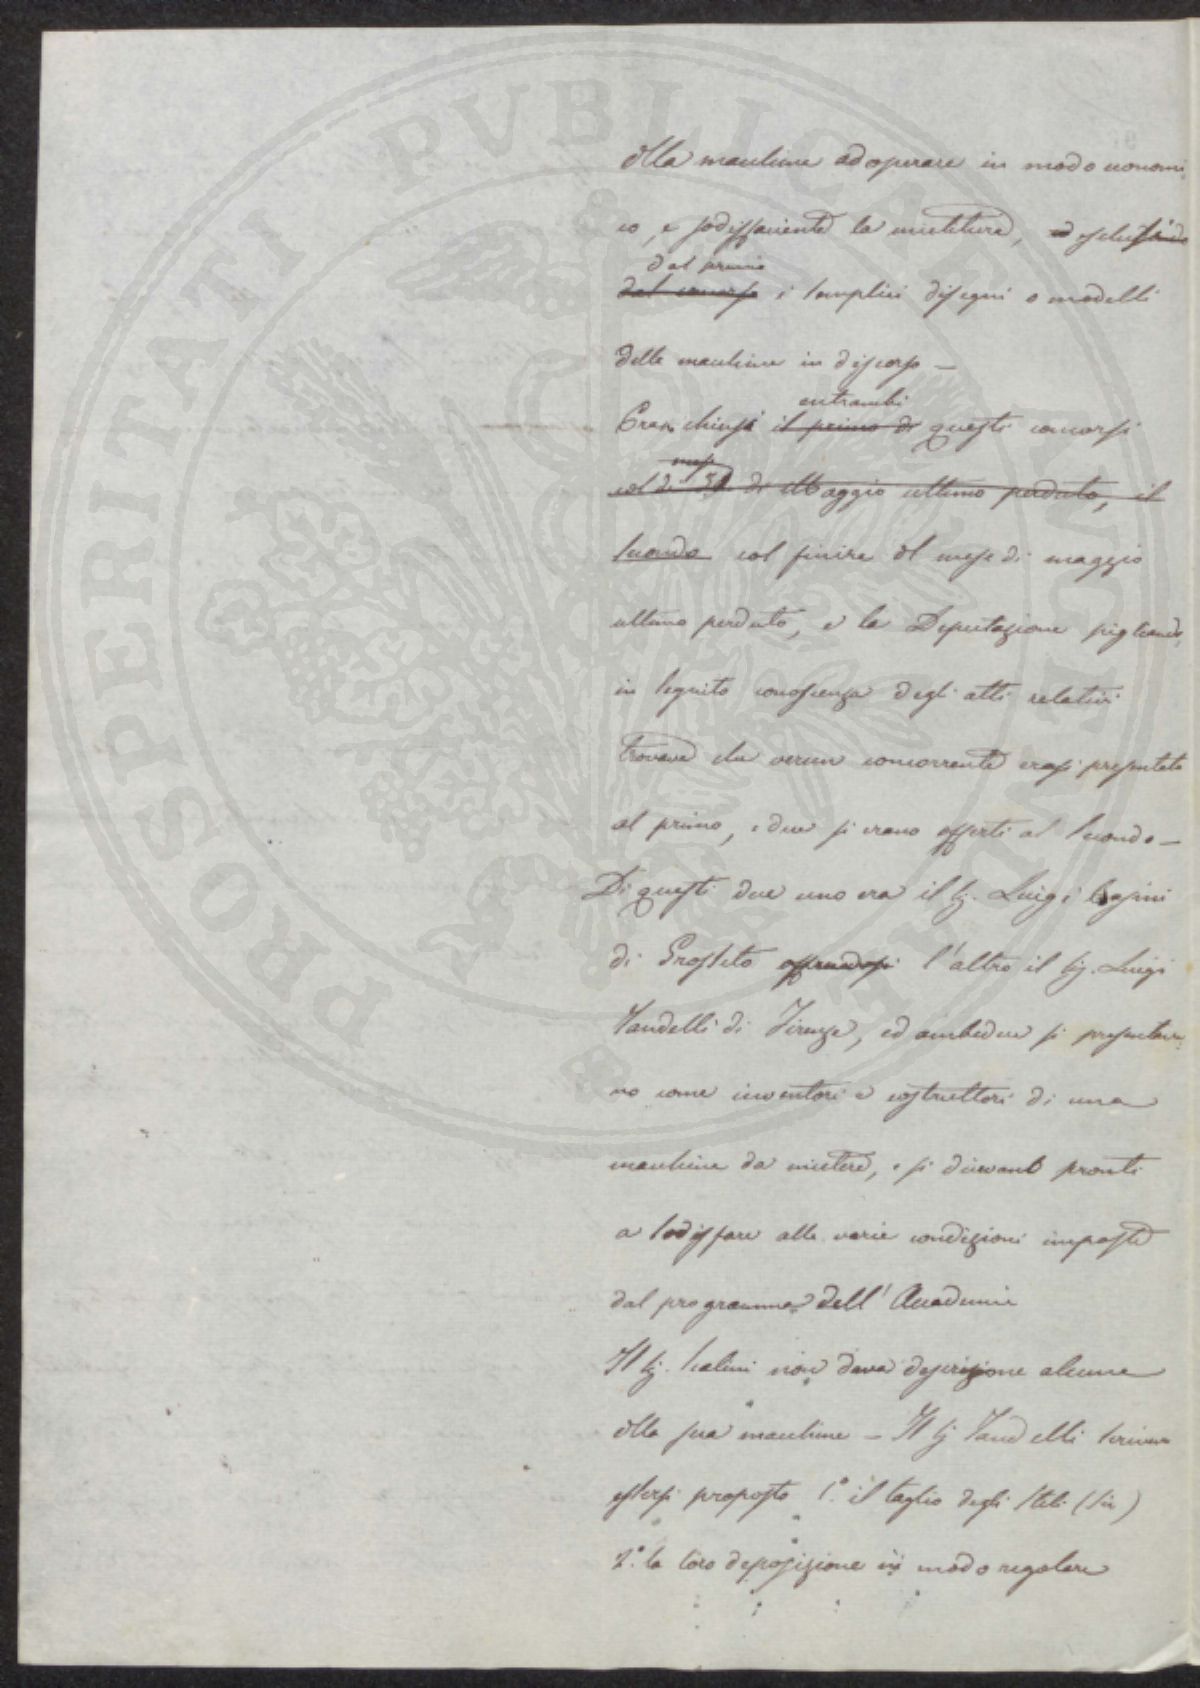 alla macchina adoperare in modo economi
co, e sodisfaciente la mietitura, ed escludendo
dal primo
dal concorso i semplici disegni o modelli
delle macchine in discorso —
entrambi
Eran chiusi il primo di questi concorsi
mese
col dì 31 di Maggio ultimo perduto, il
secondo col finire del mese di maggio
ultimo perduto, e la Deputazione pigliando
in seguito conoscenza degli atti relativi
trovava che verun concorrente erasi presentato
al primo, e due si erano offerti al secondo —
Di questi due uno era il Sig. Luigi
di Grosseto offrendosi l'altro il Sig. Luigi
Vandelli di Firenze, ed ambedue si presentava
no come inventori e costruttori di una
macchina da mietere, e si dicevano pronti
a sodisfare alle varie condizioni imposte
dal programma dell'Accademia
Il Sig. non dava descrizione alcuna
della sua macchina — Il Sig Vandelli scriveva
essersi proposto 1.° il taglio degli steli (sic)
2.° la loro deposizione in modo regolare
PROSPERITATI PVBLICAE AVGENDAE